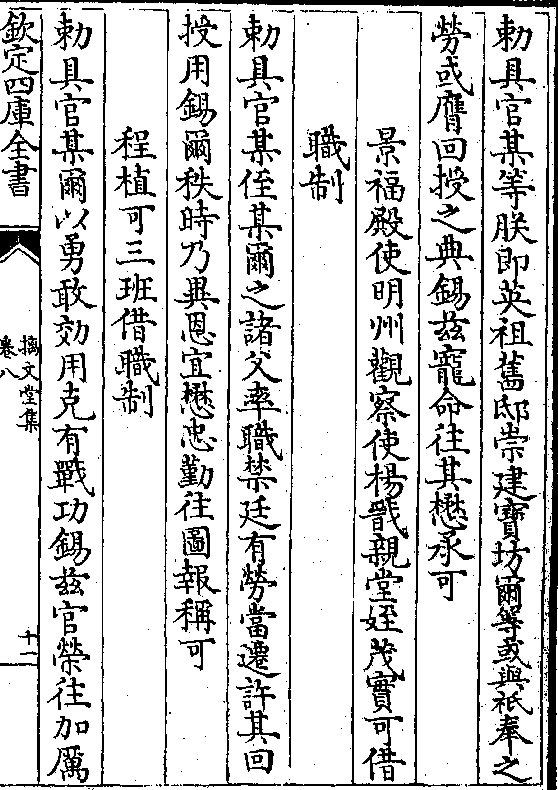 勅具官某等朕即英祖舊邸崇建寳坊爾等或與祇奉之
勞或膺回授之典錫兹寵命往其懋承可
景福殿使明州觀察使楊戩親堂姪茂實可借
職制
勅具官某侄某爾之諸父率職禁廷有勞當遷許其回
授用錫爾秩時乃異恩宜懋忠勤往圖報稱可
程植可三班借職制
勅具官某爾以勇敢効用克有戰功錫兹官榮往加厲
欽定四庫全書
摛文堂集
卷八
十二